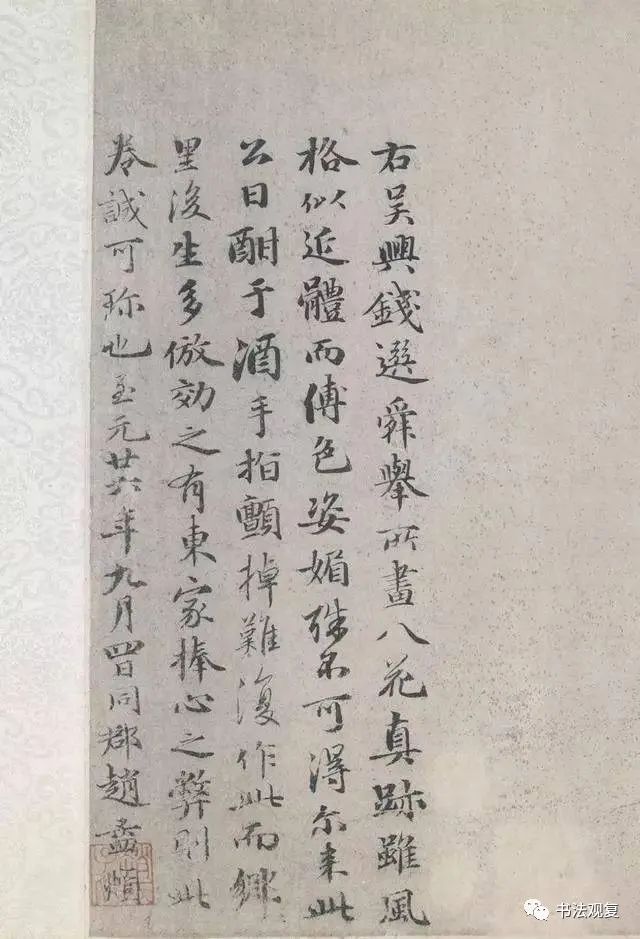 右吳興錢選舜舉所畫八花真跡雖風
格似近體而傅色姿媚殊不可得尓來此
公日酣于酒手指顫掉難復作此而鄉
里後生多倣効之有東家捧心之弊則此
卷誠可珎也至元廿六年九月四日同郡趙孟頫
书法观复